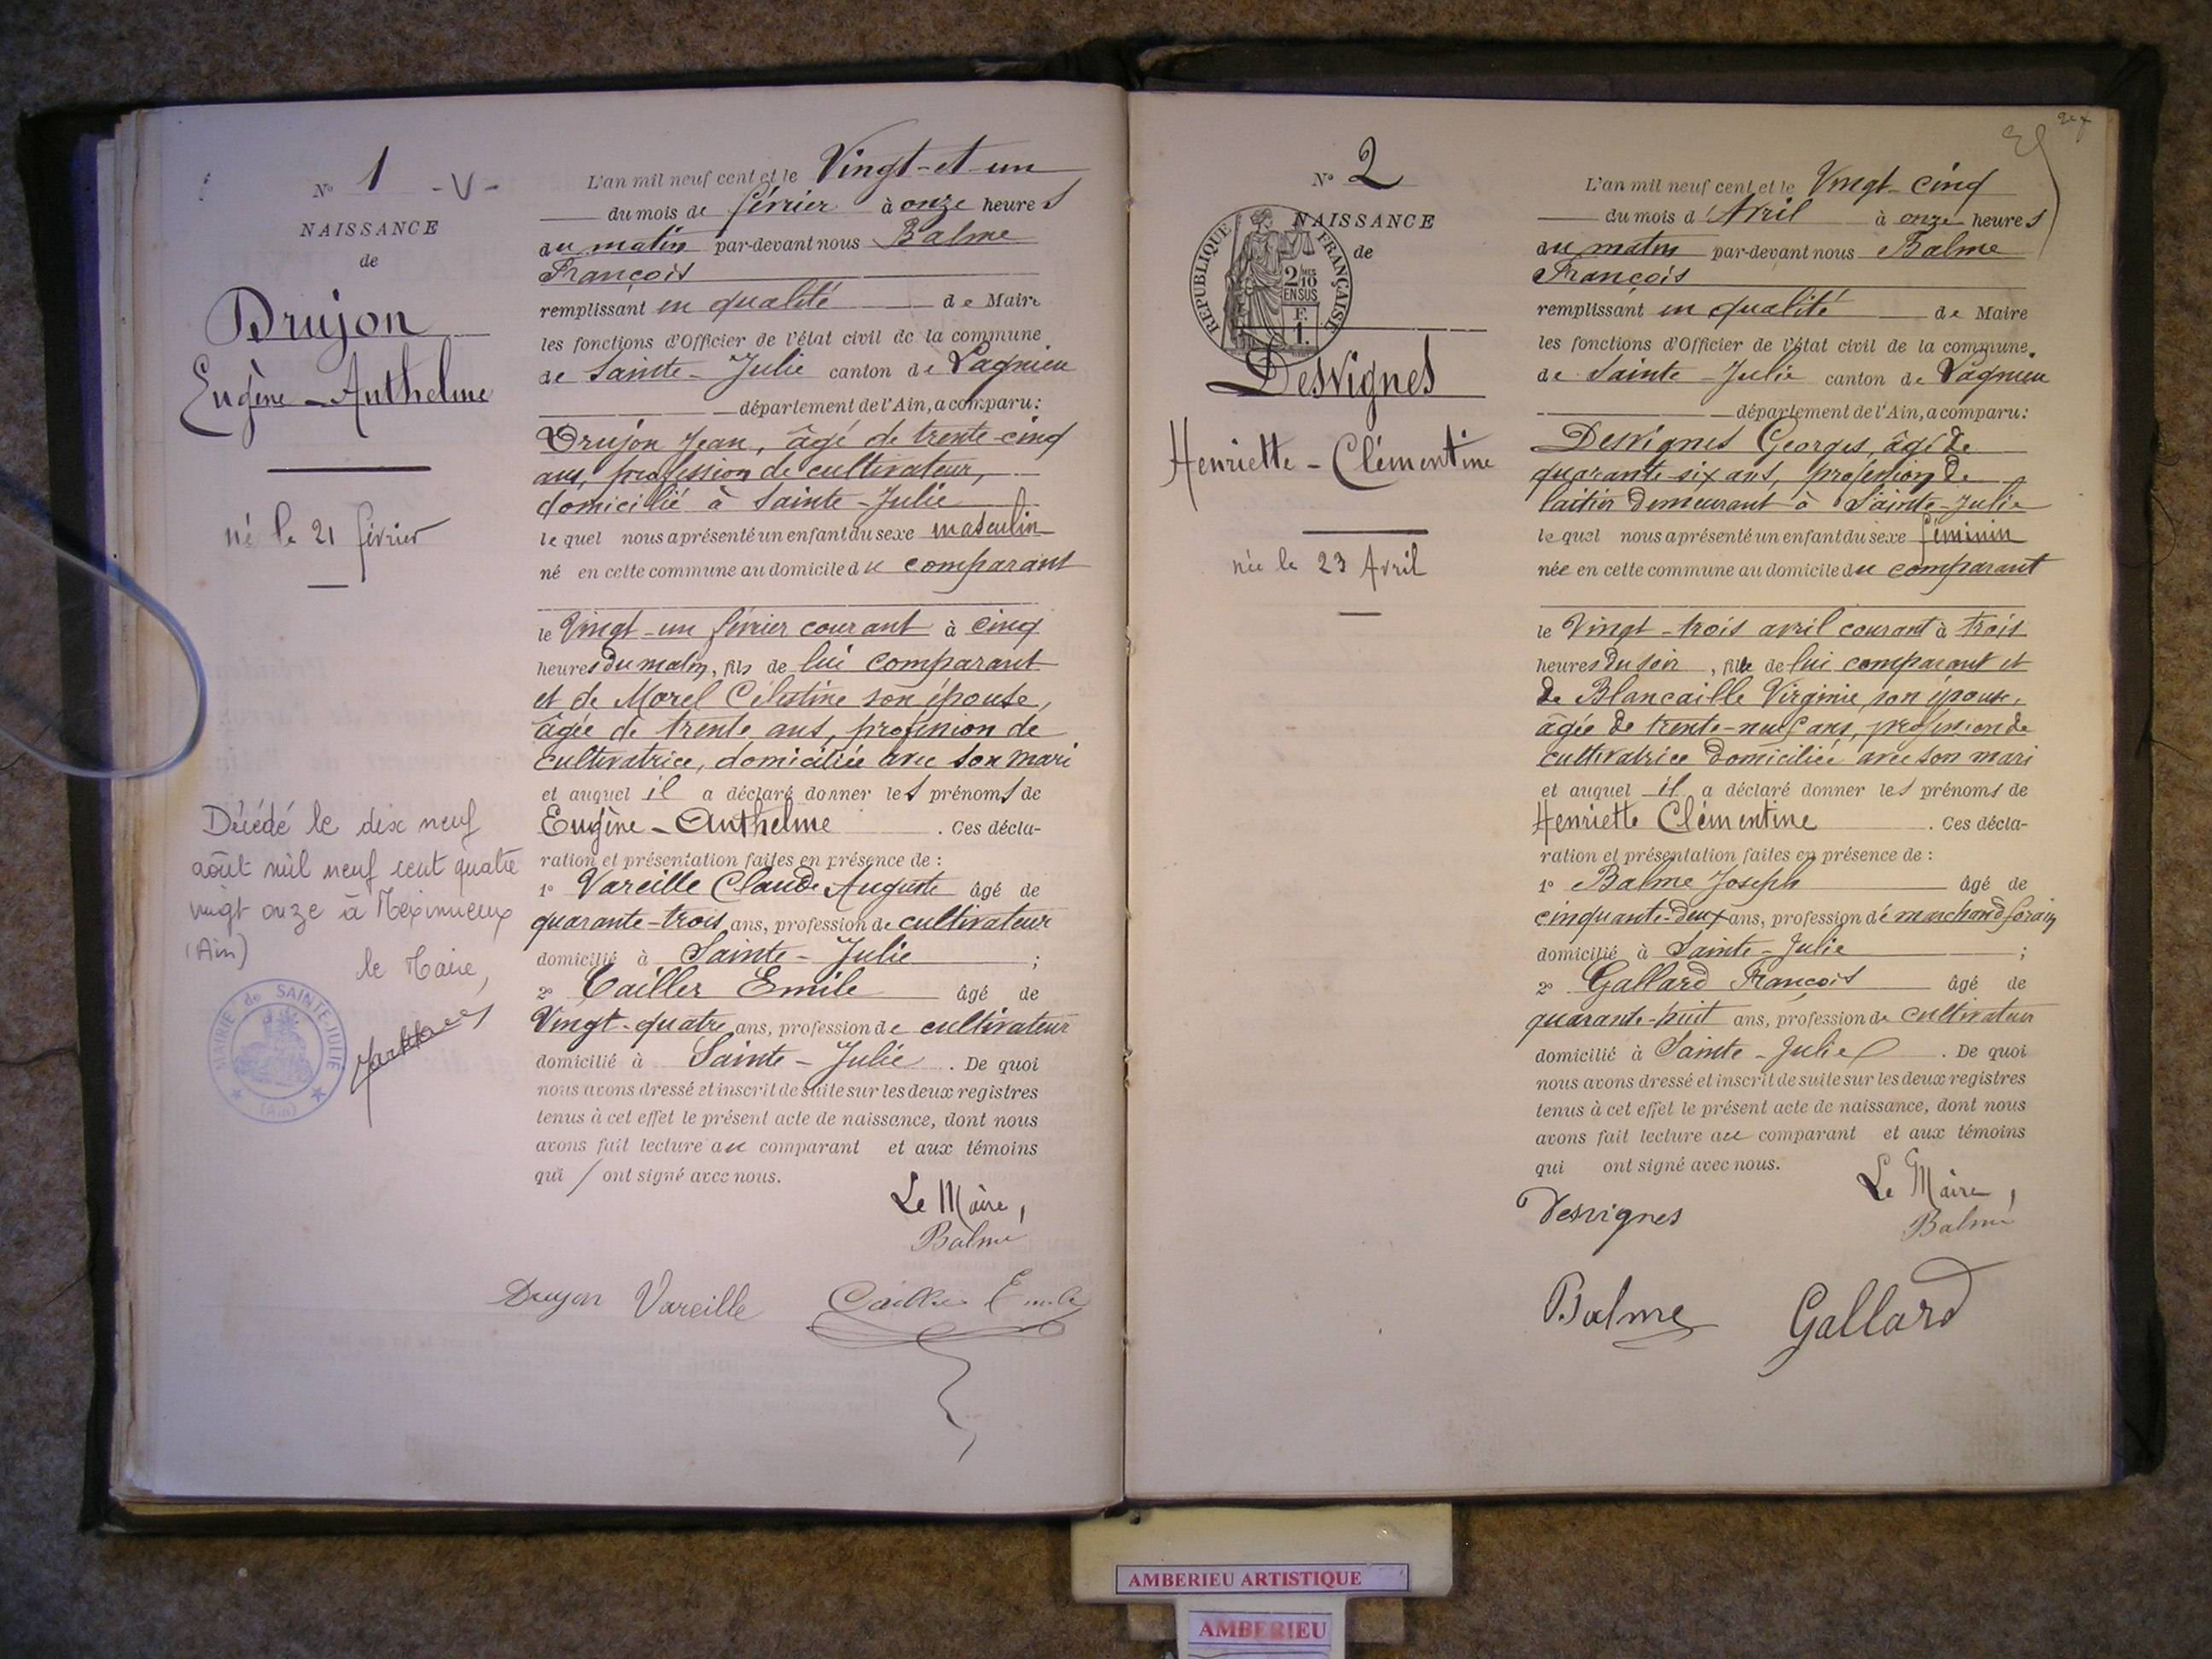 N° 1 - V -
NAISSANCE
de
Drujon
Eugène - Anthelme
né le 21 février
Décédé le dix neuf
août mil neuf cent quatre
vingt onze à Meximieux
(Ain)
le Maire,
MAIRIE de SAINTE-JULIE
(Ain)
L'an mil neuf cent et le Vingt-et-un
du mois de février à onze heures
du matin par-devant nous Balme
François
remplissant en qualité de Maire
les fonctions d'Officier de l'état civil de la commune
de Sainte-Julie canton de Lagnieu
département de l'Ain, a comparu:
Drujon Jean, âgé de trente-cinq
ans, profession de cultivateur,
domicilié à Sainte-Julie
lequel nous a présenté un enfant du sexe masculin
né en cette commune au domicile du comparant
le Vingt-un février courant à cinq
heures du matin, fils de lui comparant
et de Morel Célestine son épouse,
âgée de trente ans, profession de
cultivatrice, domiciliée avec son mari
et auquel il a déclaré donner les prénoms de
Eugène-Anthelme . Ces décla-
ration et présentation faites en présence de :
1° Vareille Claude Auguste âgé de
quarante-trois ans, profession de cultivateur
domicilié à Sainte-Julie ;
2° Cailler Emile âgé de
Vingt-quatre ans, profession de cultivateur
domicilié à Sainte-Julie . De quoi
nous avons dressé et inscrit de suite sur les deux registres
tenus à cet effet le présent acte de naissance, dont nous
avons fait lecture au comparant et aux témoins
qui / ont signé avec nous.
Le Maire,
Balme
Drujon Vareille Cailler Emile
N° 2
NAISSANCE
de
REPUBLIQUE FRANÇAISE
2/10
EN SUS
F.
1.
Desvignes
Henriette - Clémentine
née le 23 Avril
L'an mil neuf cent et le Vingt-cinq
du mois d'Avril à onze heures
du matin par-devant nous Balme
François
remplissant en qualité de Maire
les fonctions d'Officier de l'état civil de la commune
de Sainte-Julie canton de Lagnieu
département de l'Ain, a comparu:
Desvignes Georges, âgé de
quarante-six ans, profession de
laitier demeurant à Sainte-Julie
lequel nous a présenté un enfant du sexe féminin
née en cette commune au domicile du comparant
le Vingt-trois avril courant à trois
heures du soir, fille de lui comparant et
de Blancaille Virginie, son épouse,
âgée de trente-neuf ans, profession de
cultivatrice domiciliée avec son mari
et auquel il a déclaré donner les prénoms de
Henriette Clémentine . Ces décla-
ration et présentation faites en présence de :
1° Balme Joseph âgé de
cinquante-deux ans, profession de marchand forain
domicilié à Sainte-Julie ;
2° Gallard François âgé de
quarante-huit ans, profession de cultivateur
domicilié à Sainte-Julie . De quoi
nous avons dressé et inscrit de suite sur les deux registres
tenus à cet effet le présent acte de naissance, dont nous
avons fait lecture au comparant et aux témoins
qui ont signé avec nous.
Le Maire,
Desvignes
Balme
Balme Gallard
AMBERIEU ARTISTIQUE
AMBERIEU